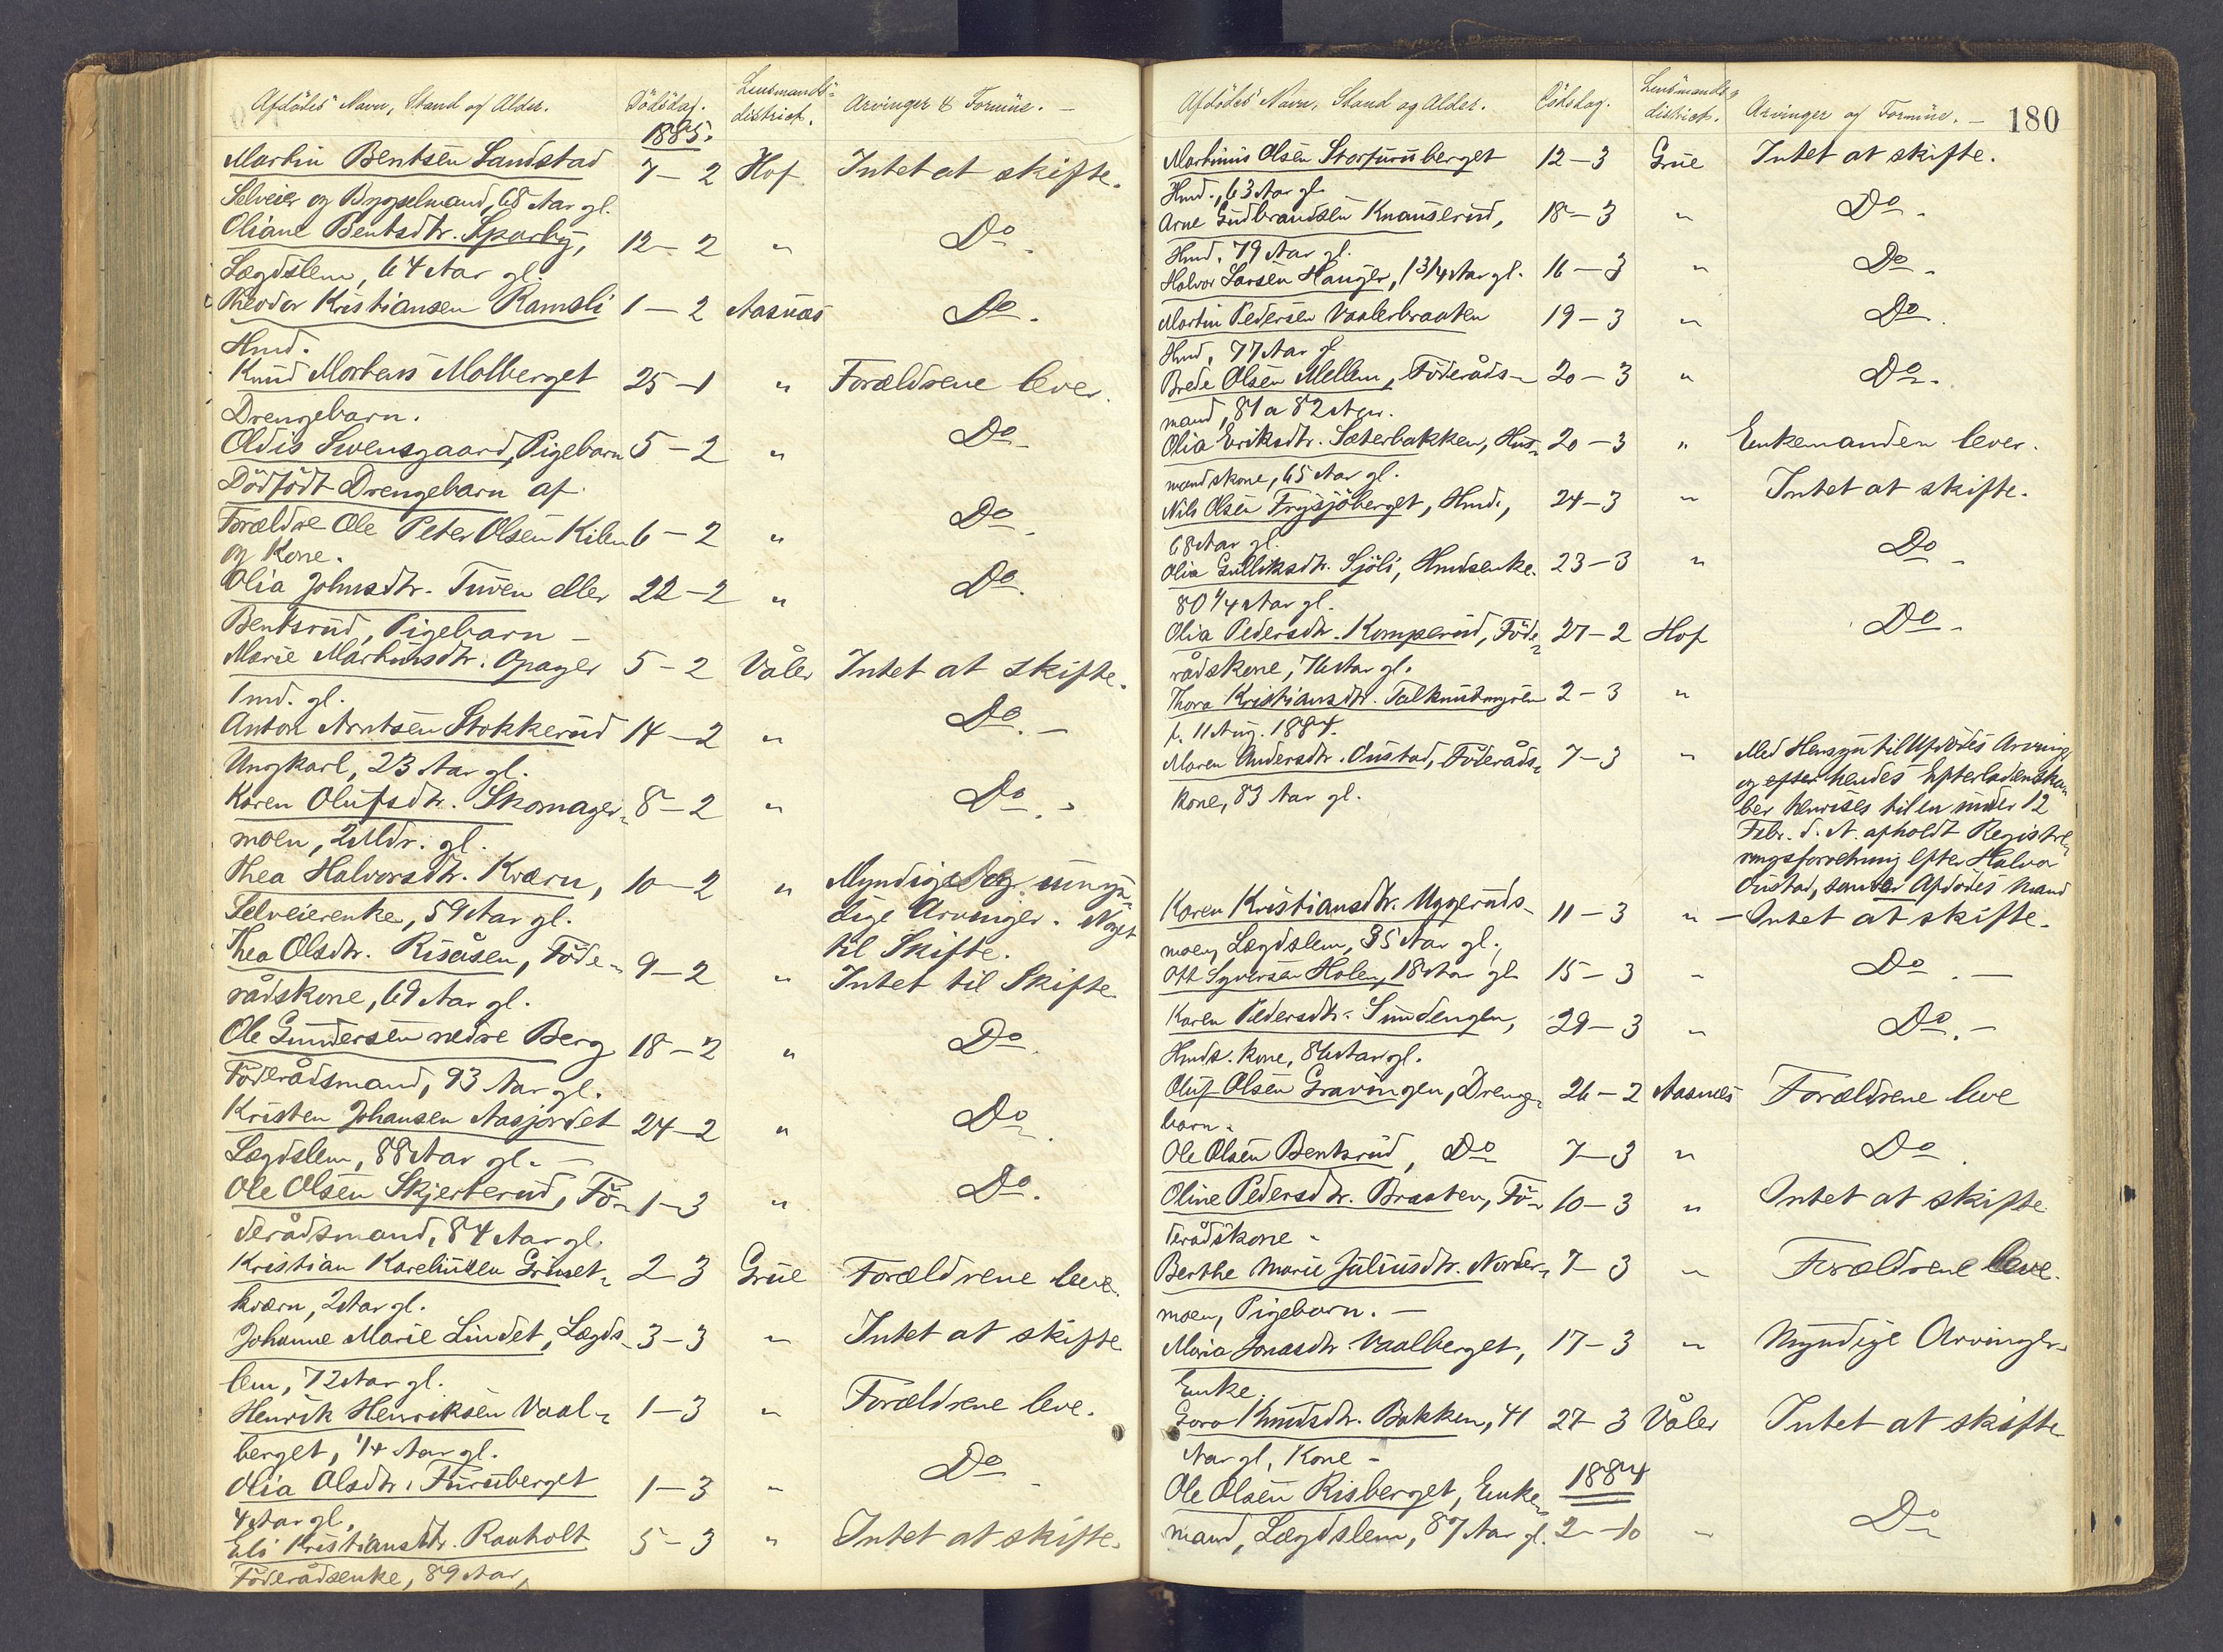 Afdødes Navn, Stand og Alder. Dödsdag. Lensmands- district. Arvinger & Formue. —
1885.
Martin Bentsen Sandstad 7–2 Hof Intet at skifte.
Selveier og Bygselmand, 68 Aar gl.
Oliane Bentsdtr. Sparby, 12–2 " Do.
Lægdslem, 64 Aar gl.
Theodor Kristiansen Ramsli 1–2 Aasnæs Do.
Hmd.
Knud Mortens Molberget 25–1 " Forældrene lever.
Drengebarn.
Oldis Svensgaard, Pigebarn 5–2 " Do
Dödfödt Drengebarn af
Forældre Ole Peter Olsen Kilen 6–2 " Do
og Kone.
Olia Johnsdtr. Tuven eller 22–2 " Do.
Bentsrud, Pigebarn –
Marie Martinsdtr. Opager 5–2 Våler Intet at skifte.
1 md. gl.
Anton Arntsen Stokkerud 14–2 " Do. –
Ungkarl, 23 Aar gl.
Karen Olufsdtr. Skomager- 8–2 " Do.
moen, 2 Mdr. gl.
Thea Halvorsdtr. Kværn, 10–2 " Myndige og umyn-
Selveierenke, 59 Aar gl. dige Arvinger. Noget
til Skifte.
Thea Olsdtr. Risåsen, Föde- 9–2 " Intet til Skifte.
rådskone, 69 Aar gl.
Ole Gundersen nedre Berg 18–2 " Do.
Föderådsmand, 93 Aar gl.
Kristen Johansen Aasjordet 24–2 " Do.
Lægdslem, 88 Aar gl. –
Ole Olsen Skjerberud, Fö- 1–3 " Do.
derådsmand, 84 Aar gl.
Kristian Kareliusen Grinet- 2–3 Grue Forældrene leve.
kværn, 2 Aar gl.
Johanne Marie Lindet, Lægds- 3–3 " Intet at skifte
lem, 72 Aar gl.
Henrik Henriksen Vaal- 1–3 " Forældrene leve.
berget, 1/4 Aar gl.
Olia Olsdtr. Furuberget 1–3 " Do
4 Aar gl.
Eli Kristiansdtr. Rauholt 5–3 " Intet at skifte.
Föderådsenke, 89 Aar,
Afdødes Navn, Stand og Alder. Dödsdag. Lensmands- district. Arvinger og Formue. – 180
Martinius Olsen Storfuruberget 12–3 Grue Intet at skifte.
Hmd., 63 Aar gl.
Arne Gudbrandsen Knauserud, 18–3 " Do.
Hmd. 79 Aar gl.
Halvor Larsen Hauger, 1 3/4 Aar gl. 16–3 " Do.
Martin Pedersen Vaalerbraaten 19–3 " Do.
Hmd. 77 Aar gl.
Brede Olsen Mellem, Föderåds- 20–3 " Do.
mand, 81 a 82 Aar.
Olia Eriksdtr. Sæterbakken, Hus- 20–3 " Enkemanden lever.
mandskone, 65 Aar gl.
Nils Olsen Frysjöberget, Hmd., 24–3 " Intet at skifte.
68 Aar gl.
Olia Gulliksdtr. Sjöli, Hmdsenke. 23–3 " Do
80 1/4 Aar gl.
Olia Pedersdtr. Komperud, Föde- 27–2 Hof Do.
rådskone, 76 Aar gl.
Thora Kristiansdtr. 2–3 "
f. 11 Aug. 1884.
Maren Andersdtr. Oustad, Föderåds- 7–3 " Med Hensyn til Afdödes Arving.
kone, 83 Aar gl. og efter hendes Efterladenska-
ber henvises til en under 12
Febr. d. A. afholdt Registre-
ringsforretning efter Halvor
Oustad, Afdödes Mand
Karen Kristiansdtr. Uggeruds- 11–3 " – Intet at skifte.
moen, Lægdslem, 35 Aar gl.
Syversen Holen, 18 Aar gl. 15–3 " Do. –
Karen Pedersdtr. Sundengen, 29–3 " Do. –
Hmds. kone, 86 Aar gl.
Oluf Olsen Gravingen, Drenge- 26–2 Aasnæs Forældrene leve
barn.
Ole Olsen Bentsrud, Do 7–3 " Do.
Oline Pedersdtr. Braaten, Fö- 10–3 " Intet at skifte
derådskone –
Berthe Marie Juliusdtr. Norder- 7–3 " Forældrene leve.
moen, Pigebarn. –
Maria Jonasdtr. Vaalberget, 17–3 " Myndige Arvinger.
Enke.
Goro Knudsdtr. Bakken, 41 27–3 Våler Intet at skifte
Aar gl, Kone –
Ole Olsen Risberget, Enke- 1884
mand, Lægdslem, 87 Aar gl. 2–10 " Do